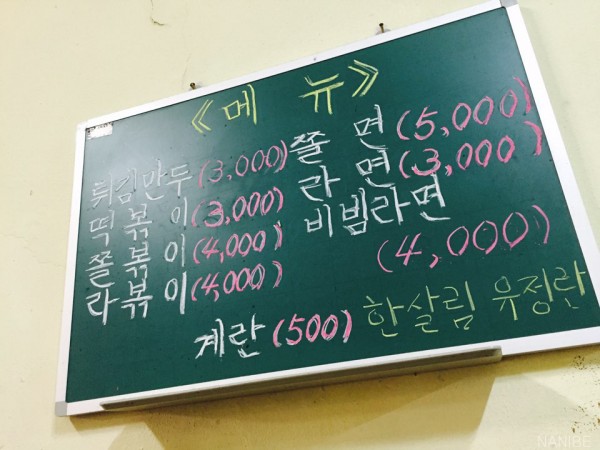 《메 뉴》
튀김만두(3,000)
떡볶이(3,000)
쫄볶이(4,000)
라볶이(4,000)
쫄 면(5,000)
라 면(3,000)
비빔라면
(4,000)
계란(500) 한살림 유정란
NANIBE